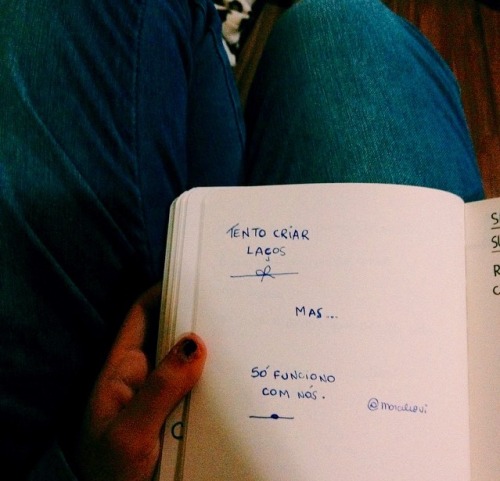 TENTO CRIAR
LAÇOS
MAS...
SÓ FUNCIONO
COM NÓS.